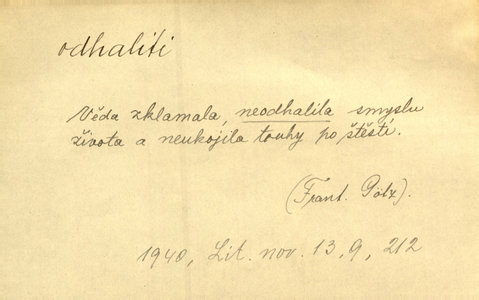 odhaliti
Věda zklamala, neodhalila smyslu
života a neukojila touhy po štěstí.
(Frant. Götz).
1940, Lit. nov. 13, 9, 212